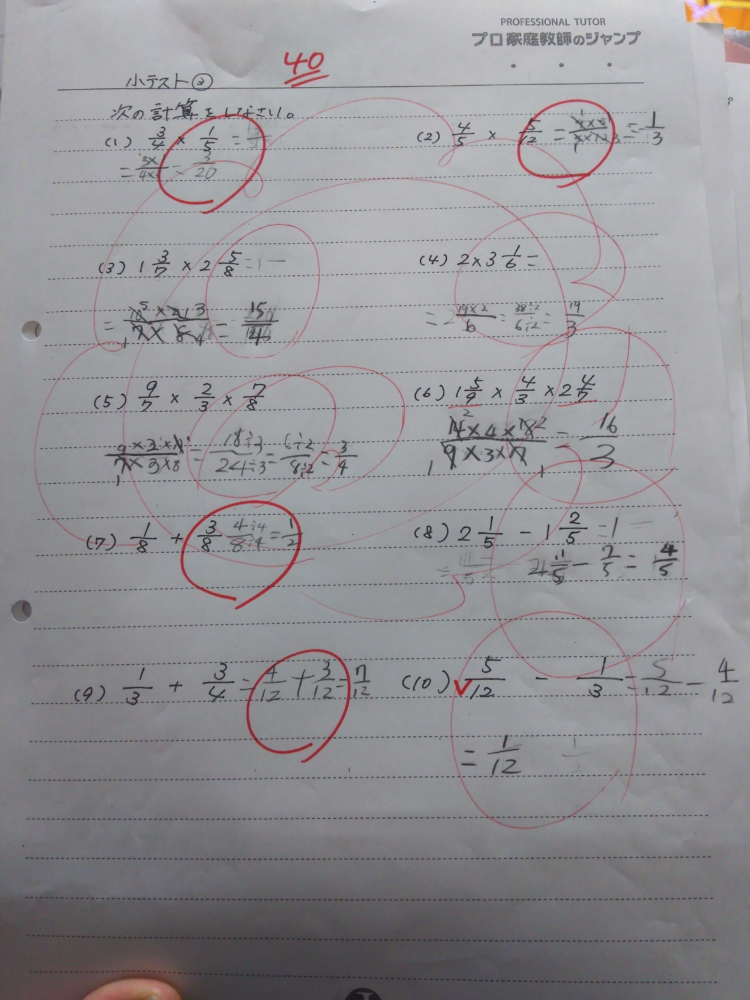 PROFESSIONAL TUTOR
プロ家庭教師のジャンプ
40
小テスト②
次の計算をしなさい。
(1) 3/4 × 1/5 =
= 3×/4× = 3/20
(2) 4/5 × 5/12 = 4×5/5×12 = 1/3
(3) 1 3/7 × 2 5/8 = 1
= 10 5 × 21 3/7 × 8 4 = 15/4
1
(4) 2×3 1/6 =
= 19×2/6 = 38÷2/6÷2 = 19/3
(5) 9/7 × 2/3 × 7/8
9×2×7/7×3×8 = 18÷3/24÷3 = 6÷2/8÷2 = 3/4
1
(6) 1 5/9 × 4/3 × 2 4/7
14 2 ×4×18 2/9×3×7 = 16/3
1 1
(7) 1/8 + 3/8 4÷4/8÷4 = 1/2
(8) 2 1/5 - 1 2/5 = 1
/5 - 2/5 = 4/5
(9) 1/3 + 3/4 = 4/12 + 3/12 = 7/12
(10) 5/12 - 1/3 = 5/12 - 4/12
= 1/12